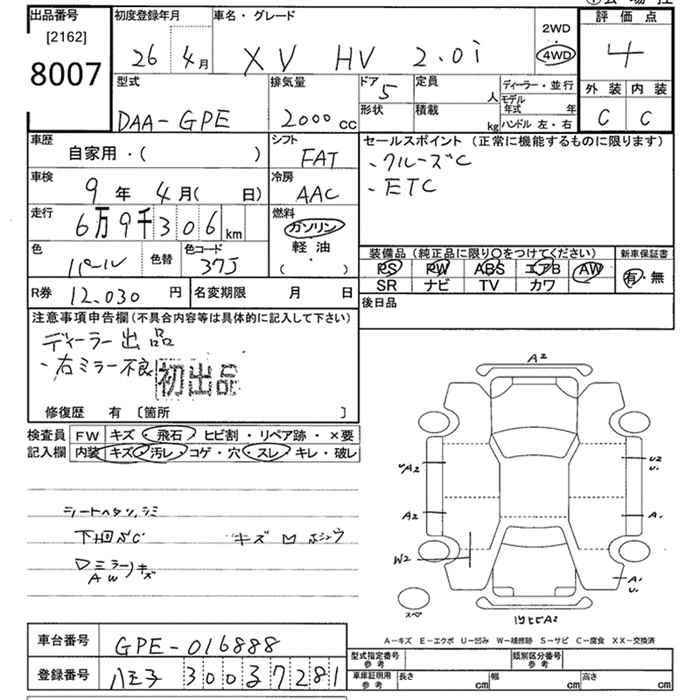 出品番号
[2162]
8007
初度登録年月
26年 4月
車名・グレード
XV HV 2.0i
2WD
4WD
評価点
4
外装 内装
C C
型式
DAA-GPE
排気量
2000 cc
ドア
5
形状
定員 人
積載 kg
ディーラー・並行
モデル年式 年
ハンドル 左・右
車歴
自家用・( )
シフト
FAT
セールスポイント (正常に機能するものに限ります)
・クルーズC
・ETC
車検
9年 4月( 日)
冷房
AAC
走行
6万9千306km
燃料
ガソリン
軽油
( ・ )
色
パール
色替
色コード
37J
装備品 (純正品に限り〇をつけてください)
PS PW ABS エアB AW
SR ナビ TV カワ
新車保証書
有・無
R券 12,030 円
名変期限 月 日
後日品
注意事項申告欄(不具合内容等は具体的に記入して下さい)
ディーラー出品
・右ミラー不良
初出品
修復歴 有 [箇所 ]
検査員
記入欄
FW キズ・飛石・ヒビ割・リペア跡・×要
内装 キズ・汚レ・コゲ・穴・スレ・キレ・破レ
A2
A2
U2
U.
A2
A.
W2
A.
U.
スペ
下回りC
ミラーキズ
AW
A-キズ E-エクボ U-凹み W-補修跡 S-サビ C-腐食 XX-交換済
車台番号 GPE-016888
登録番号 八王子 300 ろ 7281
型式指定番号
参考
類別区分番号
参考
車庫証明用
参考
長さ cm 幅 cm 高さ cm